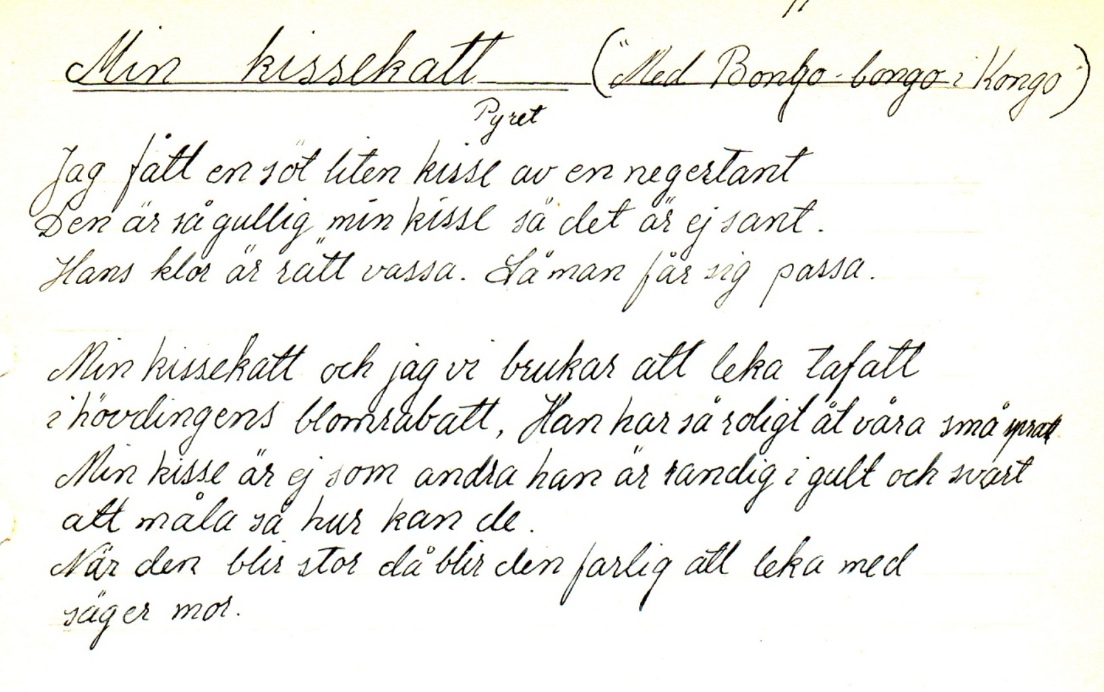 Min kissekatt ("Med Bongo-bongo i Kongo")
Pyret
Jag fått en söt liten kisse av en negertant
Den är så gullig min kisse så det är ej sant.
Hans klor är rätt vassa. Så man får sig passa.
Min kissekatt och jag vi brukar att leka tafatt
i hövdingens blomrabatt, Han har så roligt åt våra små spratt
Min kisse är ej som andra han är randig i gult och svart
att måla så hur kan de.
När den blir stor då blir den farlig att leka med
säger mor.